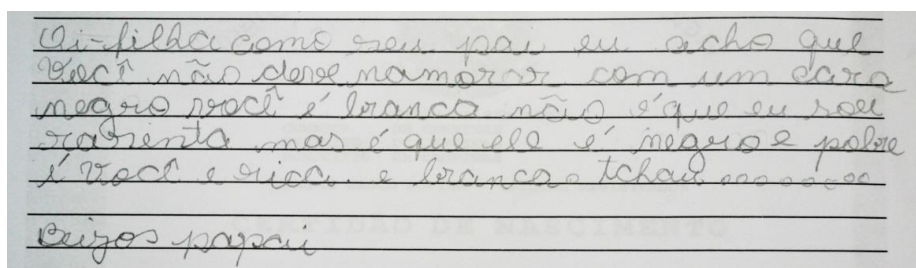 Oi-filha como seu pai eu acho que
você não deve namorar com um cara
negro você é branca não é que eu sou
rasenta mas é que ele é negro e pobre
é você e rica. e branca. tchau........
Beizos papai
CERTIDÃO DE NASCIMENTO